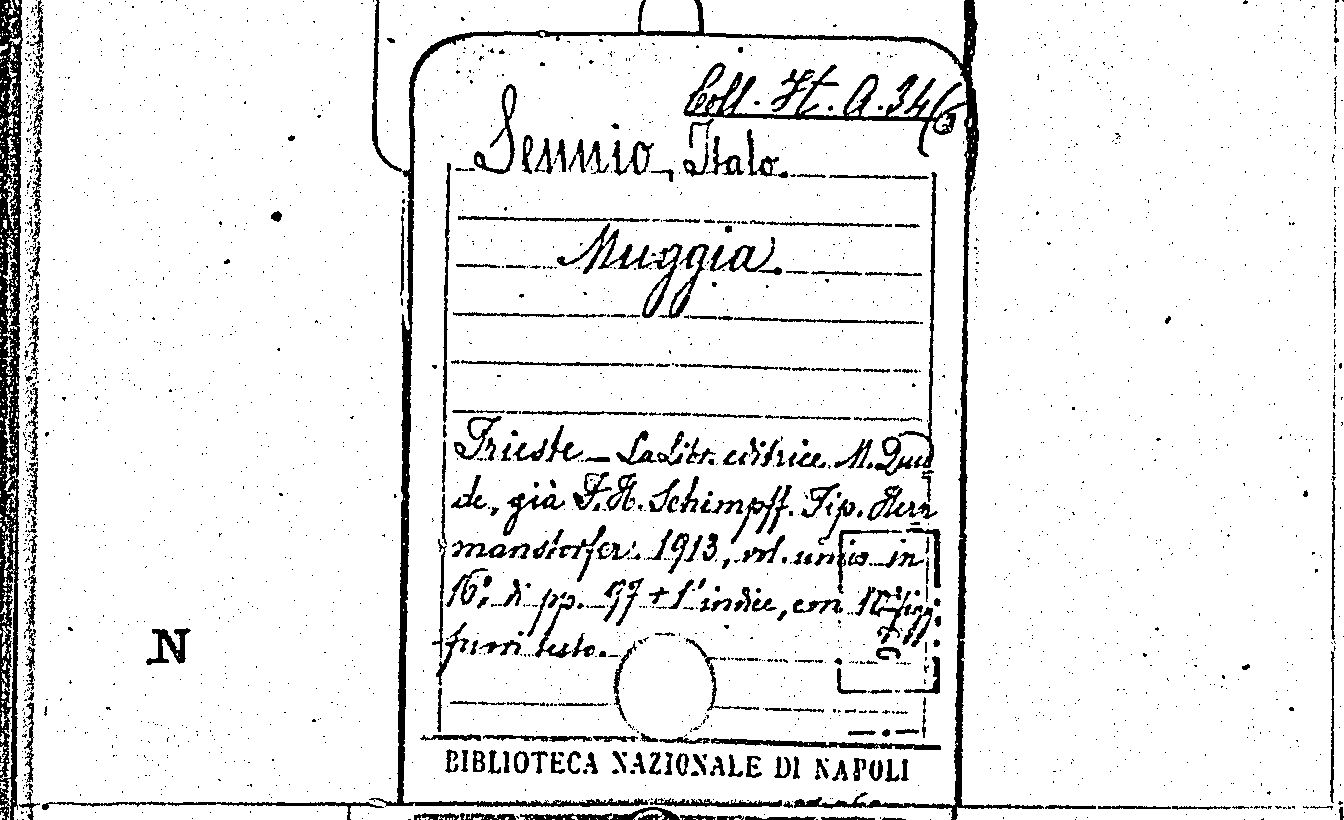 Coll. It. A. 34(3
Sennio, Italo.
Muggia.
Trieste – La Libr. editrice M. Quid
de, già F. H. Schimpff. Tip. Herr
manstorfer. 1913, vol. unico in
16°, di pp. 97 + l'indice, con 10 figg.
fuori testo.
N
BIBLIOTECA NAZIONALE DI NAPOLI